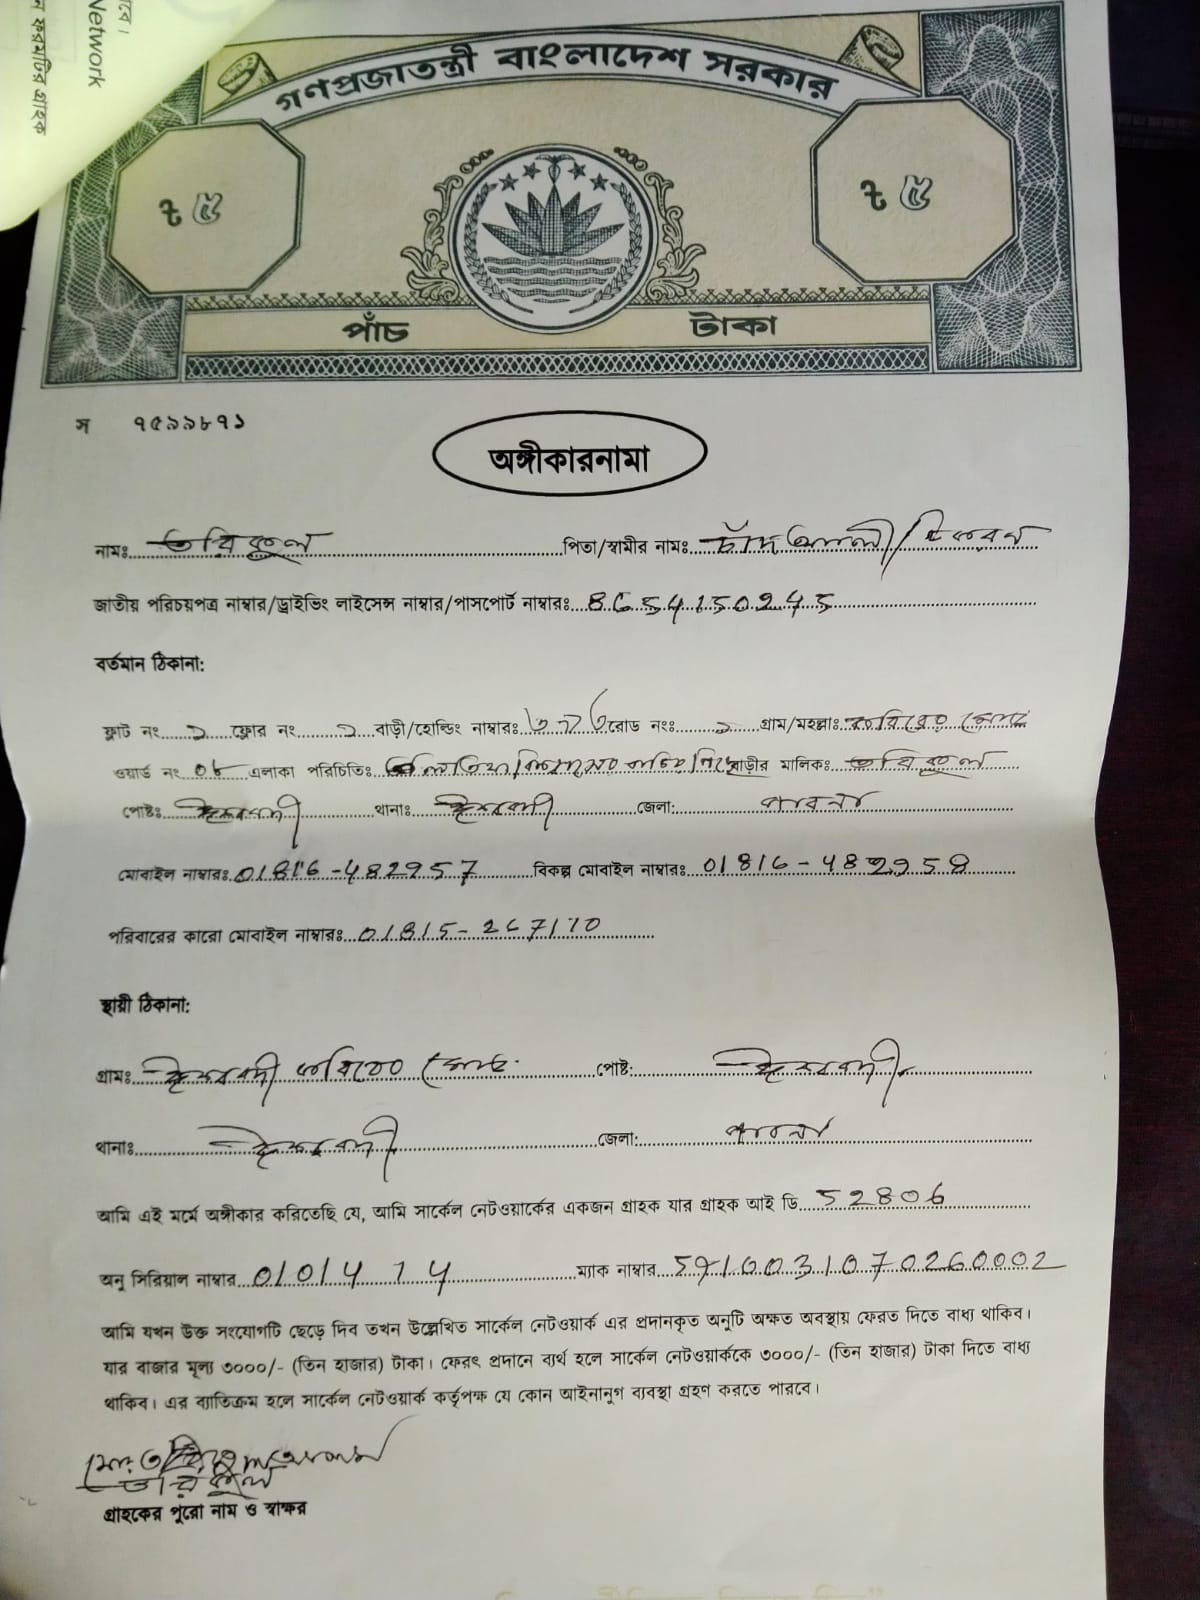 Network
গণপ্রজাতন্ত্রী বাংলাদেশ সরকার
৳ ৫ ৳ ৫
পাঁচ টাকা
স ৭৫৯৯৮৭১
অঙ্গীকারনামা
নামঃ তরিকুল পিতা/স্বামীর নামঃ চাঁদ আলী/
জাতীয় পরিচয়পত্র নাম্বার/ড্রাইভিং লাইসেন্স নাম্বার/পাসপোর্ট নাম্বারঃ 8654150245
বর্তমান ঠিকানা:
ফ্লাট নং ১ ফ্লোর নং ১ বাড়ী/হোল্ডিং নাম্বারঃ রোড নংঃ ১ গ্রাম/মহল্লাঃ
ওয়ার্ড নং 08 এলাকা পরিচিতিঃ বাড়ীর মালিকঃ তরিকুল
পোষ্টঃ ঈশ্বরদী থানাঃ ঈশ্বরদী জেলা: পাবনা
মোবাইল নাম্বারঃ 01816-482957 বিকল্প মোবাইল নাম্বারঃ 01816-482958
পরিবারের কারো মোবাইল নাম্বারঃ 01815-267110
স্থায়ী ঠিকানা:
গ্রামঃ ঈশ্বরদী পোষ্ট: ঈশ্বরদী
থানাঃ ঈশ্বরদী জেলা: পাবনা
আমি এই মর্মে অঙ্গীকার করিতেছি যে, আমি সার্কেল নেটওয়ার্কের একজন গ্রাহক যার গ্রাহক আই ডি 52806
অনু সিরিয়াল নাম্বার 0101414 ম্যাক নাম্বার
আমি যখন উক্ত সংযোগটি ছেড়ে দিব তখন উল্লেখিত সার্কেল নেটওয়ার্ক এর প্রদানকৃত অনুটি অক্ষত অবস্থায় ফেরত দিতে বাধ্য থাকিব।
যার বাজার মূল্য ৩০০০/- (তিন হাজার) টাকা। ফেরৎ প্রদানে ব্যর্থ হলে সার্কেল নেটওয়ার্ককে ৩০০০/- (তিন হাজার) টাকা দিতে বাধ্য
থাকিব। এর ব্যতিক্রম হলে সার্কেল নেটওয়ার্ক কর্তৃপক্ষ যে কোন আইনানুগ ব্যবস্থা গ্রহণ করতে পারবে।
তরিকুল
গ্রাহকের পুরো নাম ও স্বাক্ষর